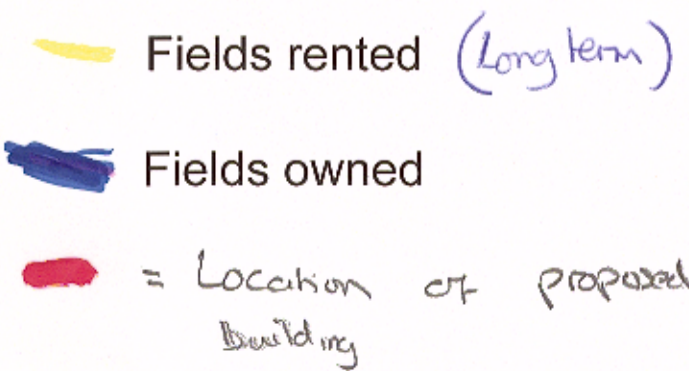 Fields rented (Long term)
Fields owned
= Location of proposed
Building